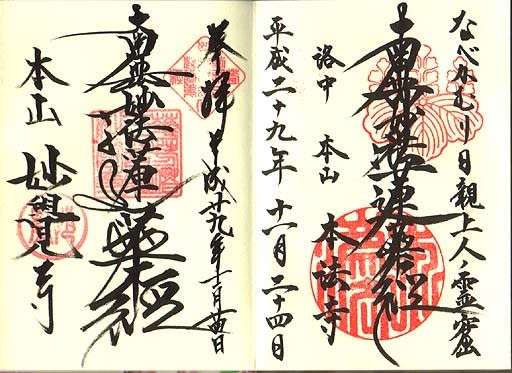 なべかむり日親上人ノ霊窟
南無妙法蓮華経
洛中 本山 本法寺
平成二十九年 十一月 二十四日
奉拝 平成廿九年十一月廿四日
南無妙法蓮華経
本山 妙覺寺